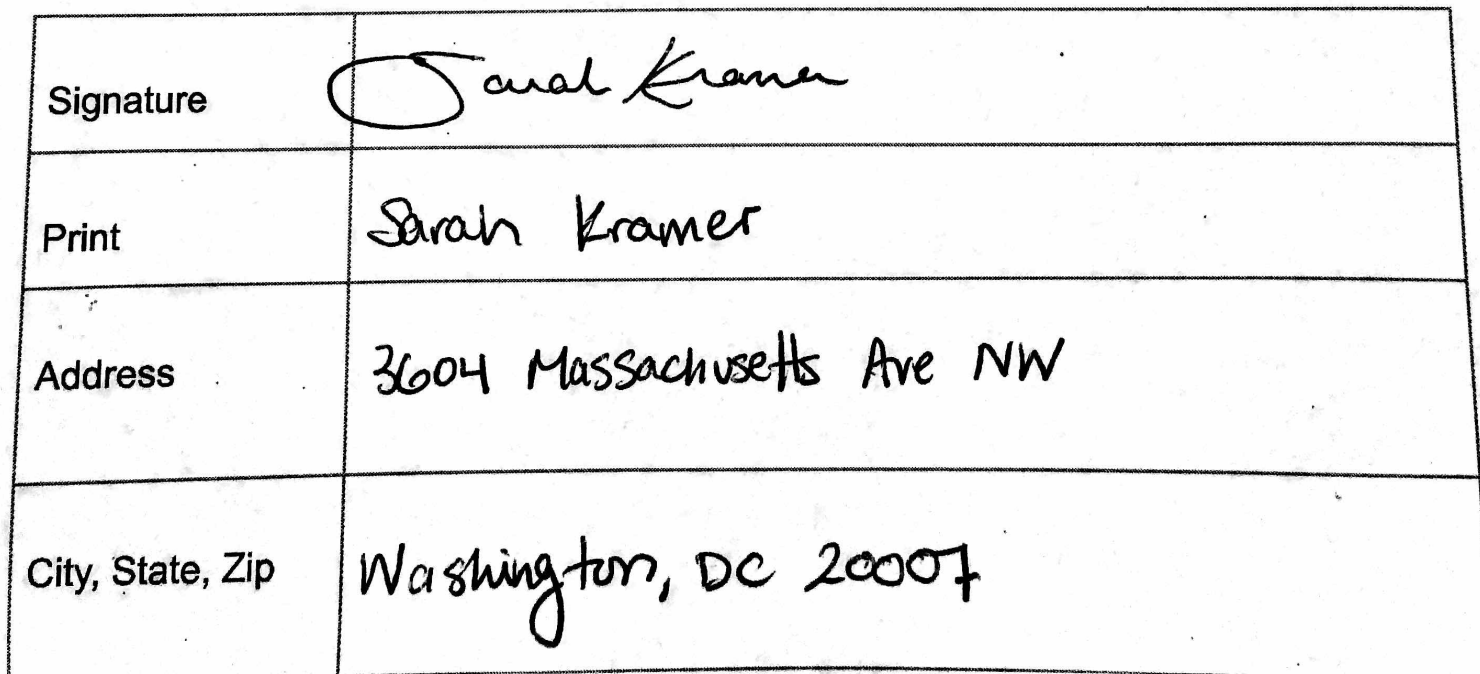 Signature Sarah Kramer
Print Sarah Kramer
Address 3604 Massachusetts Ave NW
City, State, Zip Washington, DC 20007